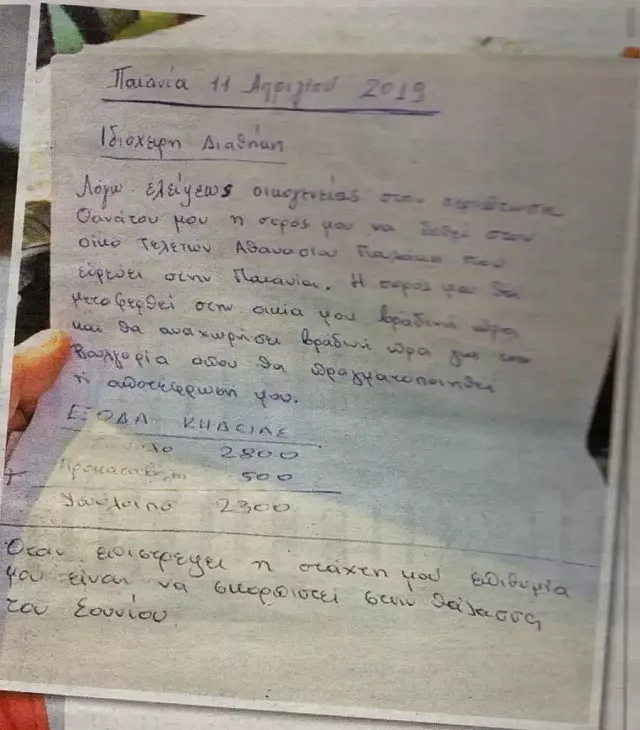 Παιανία 11 Απριλίου 2019
Ιδιόχειρη Διαθήκη
Λόγω ελείψεως οικογενείας στην περίπτωση
θανάτου μου η σορός μου να δοθεί στον
οίκο τελετών Αθανασίου που
εδρεύει στην Παιανία. Η σορός μου θα
μεταφερθεί στην οικία μου βραδινή ώρα
και θα αναχωρήσει βραδινή ώρα για την
Βουλγαρία οπου θα πραγματοποιηθεί
η αποτέφρωση μου.
ΕΞΟΔΑ ΚΗΔΕΙΑΣ
Σύνολο 2800
+ Προκαταβολή 500
Υπόλοιπο 2300
Όταν επιστρέψει η στάχτη μου επιθυμία
μου είναι να σκορπιστεί στην θάλασσα
του Σουνίου